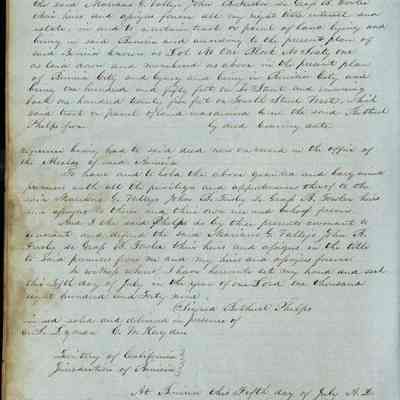 the said Mariano G. Vallejo John
their heirs and assigns forever all my right title interest and
estate, in and to a certain tract or parcel of land lying and
being in said Benicia and according to the present plan of
said Benicia known as Lot No One Block No Sixty one
as laid down and numbered as above in the present plan
of Benicia City and lying and being in Benicia City and
being one hundred and fifty feet on 1st Street and running
back one hundred twenty five feet on South Street West, which
said tract or parcel of land was the said Bethuel
Phelps by deed bearing date
reference being had to said deed now on record in the office of
the of said Benicia
To have and to hold the above granted and bargained
premises with all the privileges and appurtenances thereof to the
said Mariano G. Vallejo John B. Frisby & G. A. Fowler heirs
and assigns to theirs and their own use and behoof forever
And I the said Phelps do by these presents covenant to
warrant and defend the said Mariano G. Vallejo John B.
Frisby & B. Fowler their heirs and assigns in the title
to said premises from me and my heirs and assigns forever
In witness whereof I have hereunto set my hand and seal
this Fifth day of July in the year of our Lord one thousand
eight hundred and Forty nine
Signed Bethuel Phelps
sealed and delivered in presence of
Lyman C. W. Hayden
Territory of California }
Jurisdiction of Benicia }
At Benicia this Fifth day of July A. D.